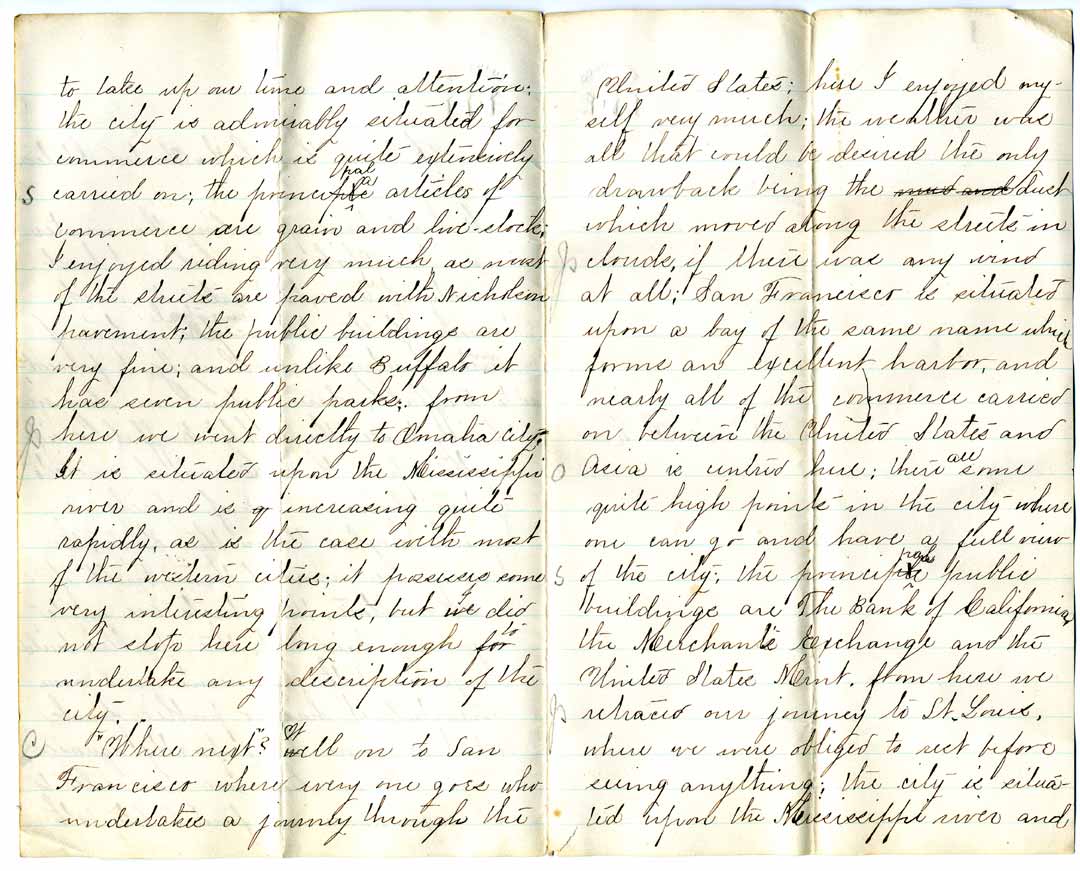 to take up our time and attention:
the city is admirably situated for
commerce which is quite extensively
pal
S carried on; the principle articles of
commerce are grain and live-stock;
I enjoyed riding very much, as most
of the streets are paved with Nicholson
pavement; the public buildings are
very fine; and unlike Buffalo it
has seven public parks; from
here we went directly to Omaha city.
It is situated upon the Mississippi
river and is increasing quite
rapidly, as is the case with most
of the western cities; it possesses some
very interesting points, but we did
to
not stop here long enough for
undertake any discription of the
city.
C "Where next"? Well on to San
Francisco where every one goes who
undertakes a journey through the
United States; here I enjoyed my-
self very much; the weather was
all that could be desired the only
drawback being the mud and dust
which moved along the streets in
clouds, if there was any wind
at all; San Francisco is situated
upon a bay of the same name which
forms an excellent harbor, and
nearly all of the commerce carried
on between the United States and
are
O Asia is centred here; there some
quite high points in the city where
one can go and have a full view
pal
S of the city; the principle public
buildings are The Bank of California,
the Merchant's Exchange and the
United States Mint. from here we
retraced our journey to St. Louis,
where we were obliged to rest before
seeing anything; the city is situa-
ted upon the Mississippi river and